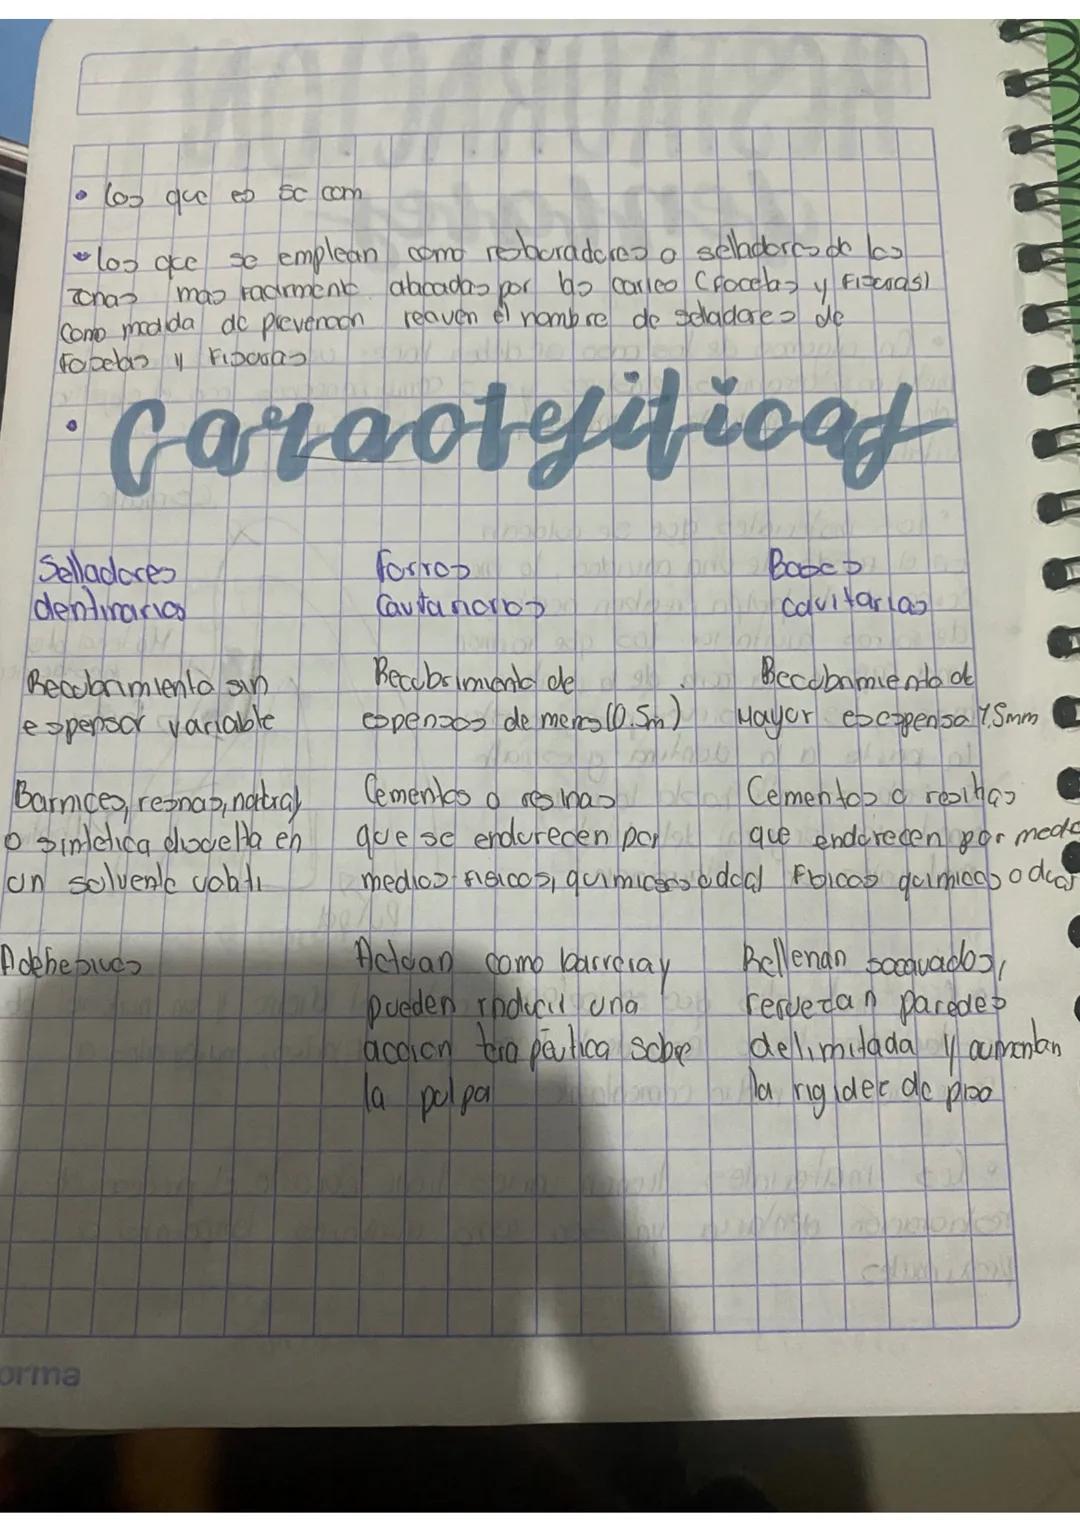 • los que es se com
• los que se emplean como restauradores o selladores de las
zonas mas facilmente atacadas por las caries (focetas y Fisuras)
Como medida de prevencion reciven el nombre de seladores de
fosetas y Fisuras
• Caracteristicas
Selladores Forros Bases
dentinarios Cavitarios cavitarias
Recubrimiento sin Recubrimiento de Recubrimiento de
espersor variable espensos de menos (0.5m) Mayor espensa 1,5mm
Barnices, resinas, natural Cementos o resinas Cementos o resinas
o sintetica disuelta en que se endurecen por que endurecen por medo
un solvente volati medios fisicos, quimicos o dual Fisicos quimicos o dual
Adehesivos Actuan como barrera y Rellenan socavados,
pueden inducil una refuerzan paredes
accion terapéutica sobre delimitada y aumentan
la pulpa la rigidez de piso
orma